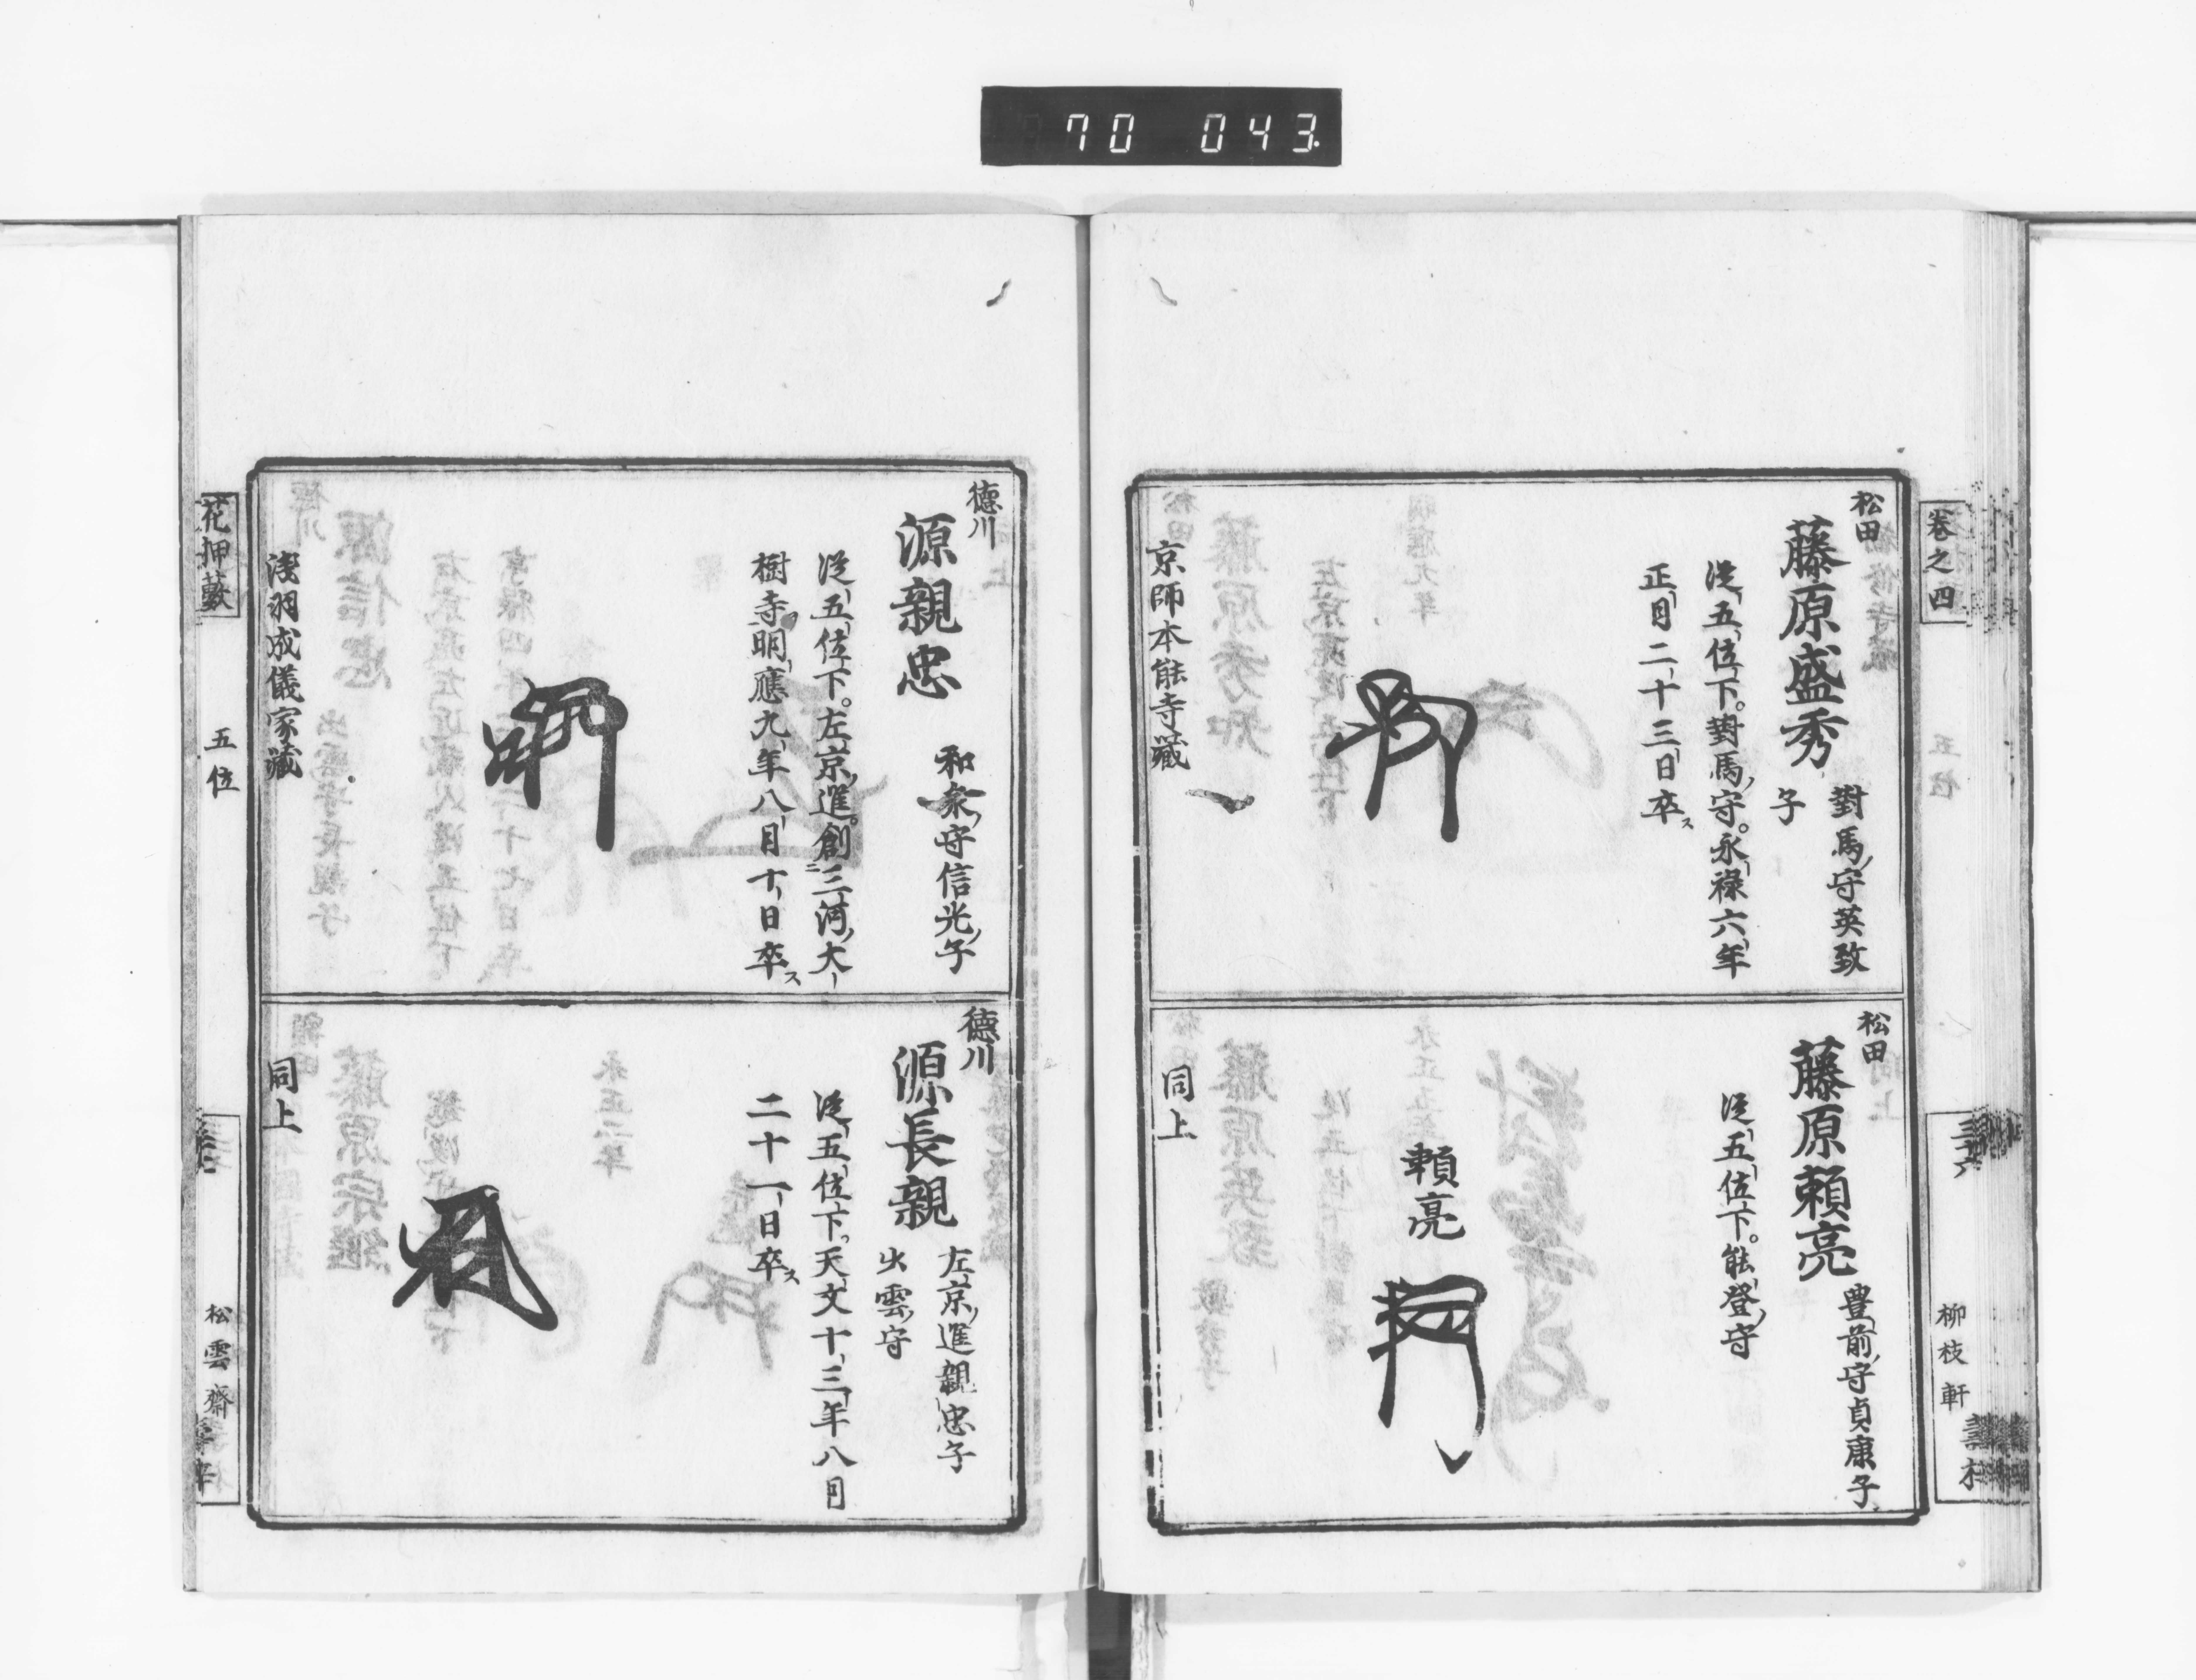 70 043.
卷之四
松田
藤原盛秀
對馬守英致
子
從五位下。對馬守。永祿六年
正月二十三日卒ス
京師本能寺藏
松田
藤原頼亮
豊前守貞康子
從五位下。能登守
頼亮
同上
柳枝軒
德川
源親忠
和泉守信光子
從五位下。左京進。創ニ三河大
樹寺。明應九年八月十日卒ス
淺羽成儀家藏
德川
源長親
左京進親忠子
出雲守
從五位下。天文十三年八月
二十一日卒ス
同上
花押藪
五位
松雲齋